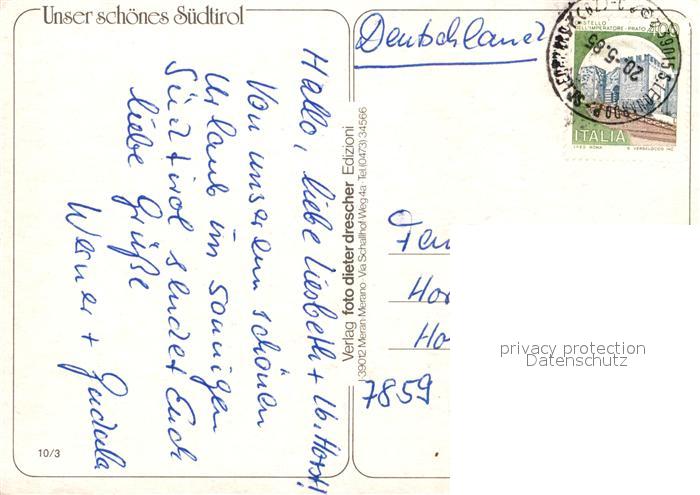 Unser schönes Südtirol
Hallo, liebe Liesbeth + lb. Horst!
Von unserem schönen
Urlaub im sonnigen
Südtirol sendet Euch
liebe Grüße
Werner + Gudula
10/3
Verlag foto dieter drescher Edizioni
I-39012 Meran·Merano·Via Schallhof Weg 4a·Tel.(0473)34566
Deutschland
CASTELLO
DELL'IMPERATORE - PRATO
20-5.85
ITALIA
Fam
Hor
Ho
7859
privacy protection
Datenschutz